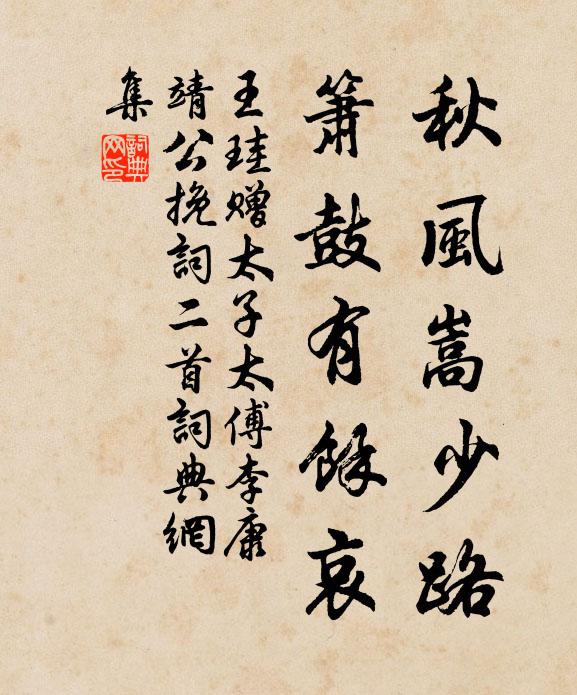 秋風嵩少路
簫鼓有餘哀
王珪贈太子太傅李康
靖公挽詞二首詞典網
集
詞典網印